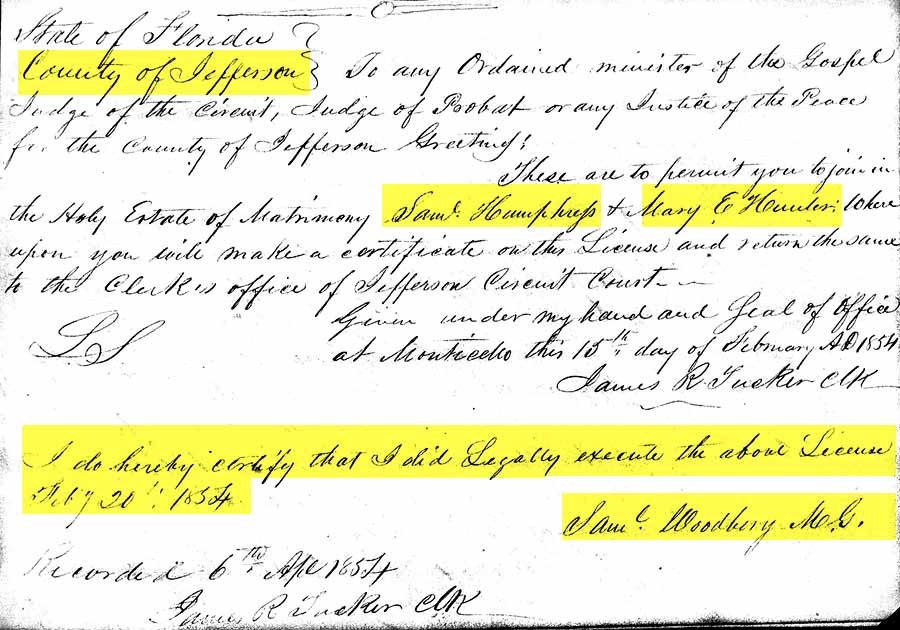 State of Florida
County of Jefferson } To any Ordained minister of the Gospel
Judge of the Circuit, Judge of Probat or any Justice of the Peace
for the County of Jefferson Greeting!
These are to permit you to join in
the Holy Estate of Matrimony Saml. Humphress & Mary E Hunter. Where
upon you will make a certificate on this License and return the same
to the Clerks office of Jefferson Circuit Court
Given under my hand and Seal of Office
LS
at Monticello this 15th day of February AD 1854
James R Tucker Clk
I do hereby certify that I did Legally execute the above License
Feby 20th. 1854
Saml. Woodbery M.G.
Recorded 6th Apl 1854
James R Tucker Clk